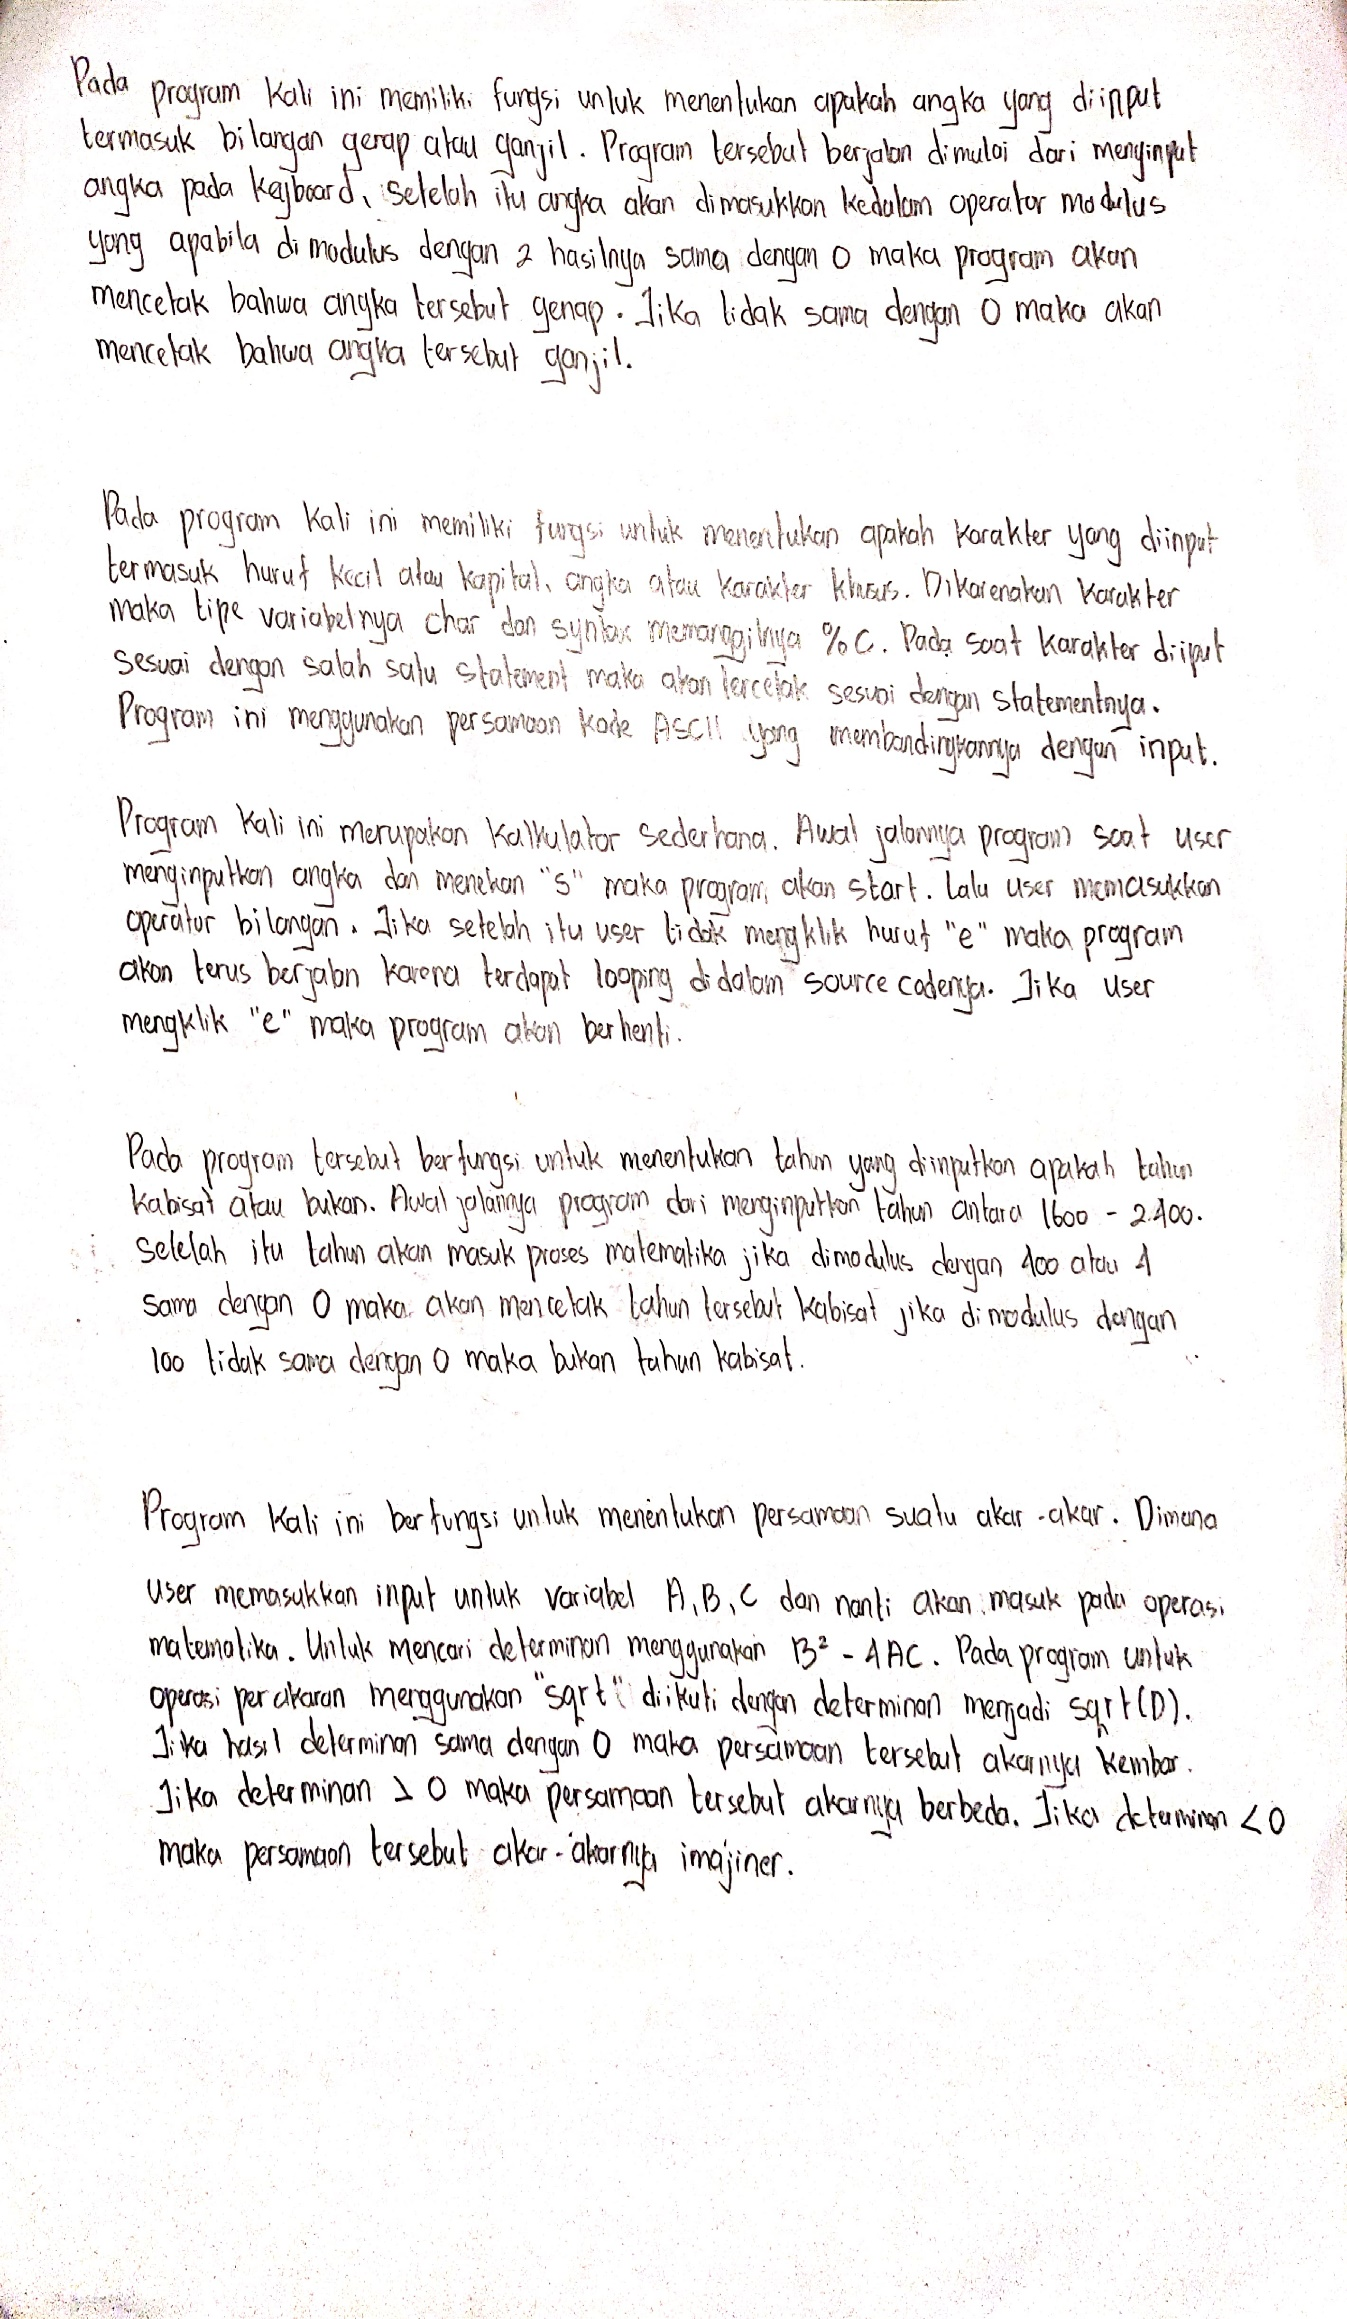 Pada program kali ini memiliki fungsi untuk menentukan apakah angka yang diinput
termasuk bilangan genap atau ganjil. Program tersebut berjalan dimulai dari menginput
angka pada keyboard, setelah itu angka akan dimasukkan kedalam operator modulus
yang apabila di modulus dengan 2 hasilnya sama dengan 0 maka program akan
mencetak bahwa angka tersebut genap. Jika tidak sama dengan 0 maka akan
mencetak bahwa angka tersebut ganjil.
Pada program kali ini memiliki fungsi untuk menentukan apakah karakter yang diinput
termasuk huruf kecil atau kapital, angka atau karakter khusus. Dikarenakan karakter
maka tipe variabelnya char dan syntax memanggilnya %c. Pada saat karakter diiput
sesuai dengan salah satu statement maka akan tercetak sesuai dengan statementnya.
Program ini menggunakan persamaan kode ASCII yang membandingkannya dengan input.
Program kali ini merupakan kalkulator sederhana. Awal jalannya program saat user
menginputkan angka dan menekan "s" maka program akan start. Lalu user memasukkan
operator bilangan. Jika setelah itu user tidak mengklik huruf "e" maka program
akan terus berjalan karena terdapat looping didalam source codenya. Jika user
mengklik "e" maka program akan berhenti.
Pada program tersebut berfungsi untuk menentukan tahun yang diinputkan apakah tahun
kabisat atau bukan. Awal jalannya program dari menginputkan tahun antara 1600 - 2400.
Setelah itu tahun akan masuk proses matematika jika dimodulus dengan 400 atau 4
sama dengan 0 maka akan mencetak tahun tersebut kabisat jika di modulus dengan
100 tidak sama dengan 0 maka bukan tahun kabisat.
Program kali ini berfungsi untuk menentukan persamaan suatu akar-akar. Dimana
user memasukkan input untuk variabel A, B, C dan nanti akan masuk pada operasi
matematika. Untuk mencari determinan menggunakan B² - 4AC. Pada program untuk
operasi perakaran menggunakan "sqrt" diikuti dengan determinan menjadi sqrt(D).
Jika hasil determinan sama dengan 0 maka persamaan tersebut akarnya kembar.
Jika determinan > 0 maka persamaan tersebut akarnya berbeda. Jika determinan < 0
maka persamaan tersebut akar-akarnya imajiner.